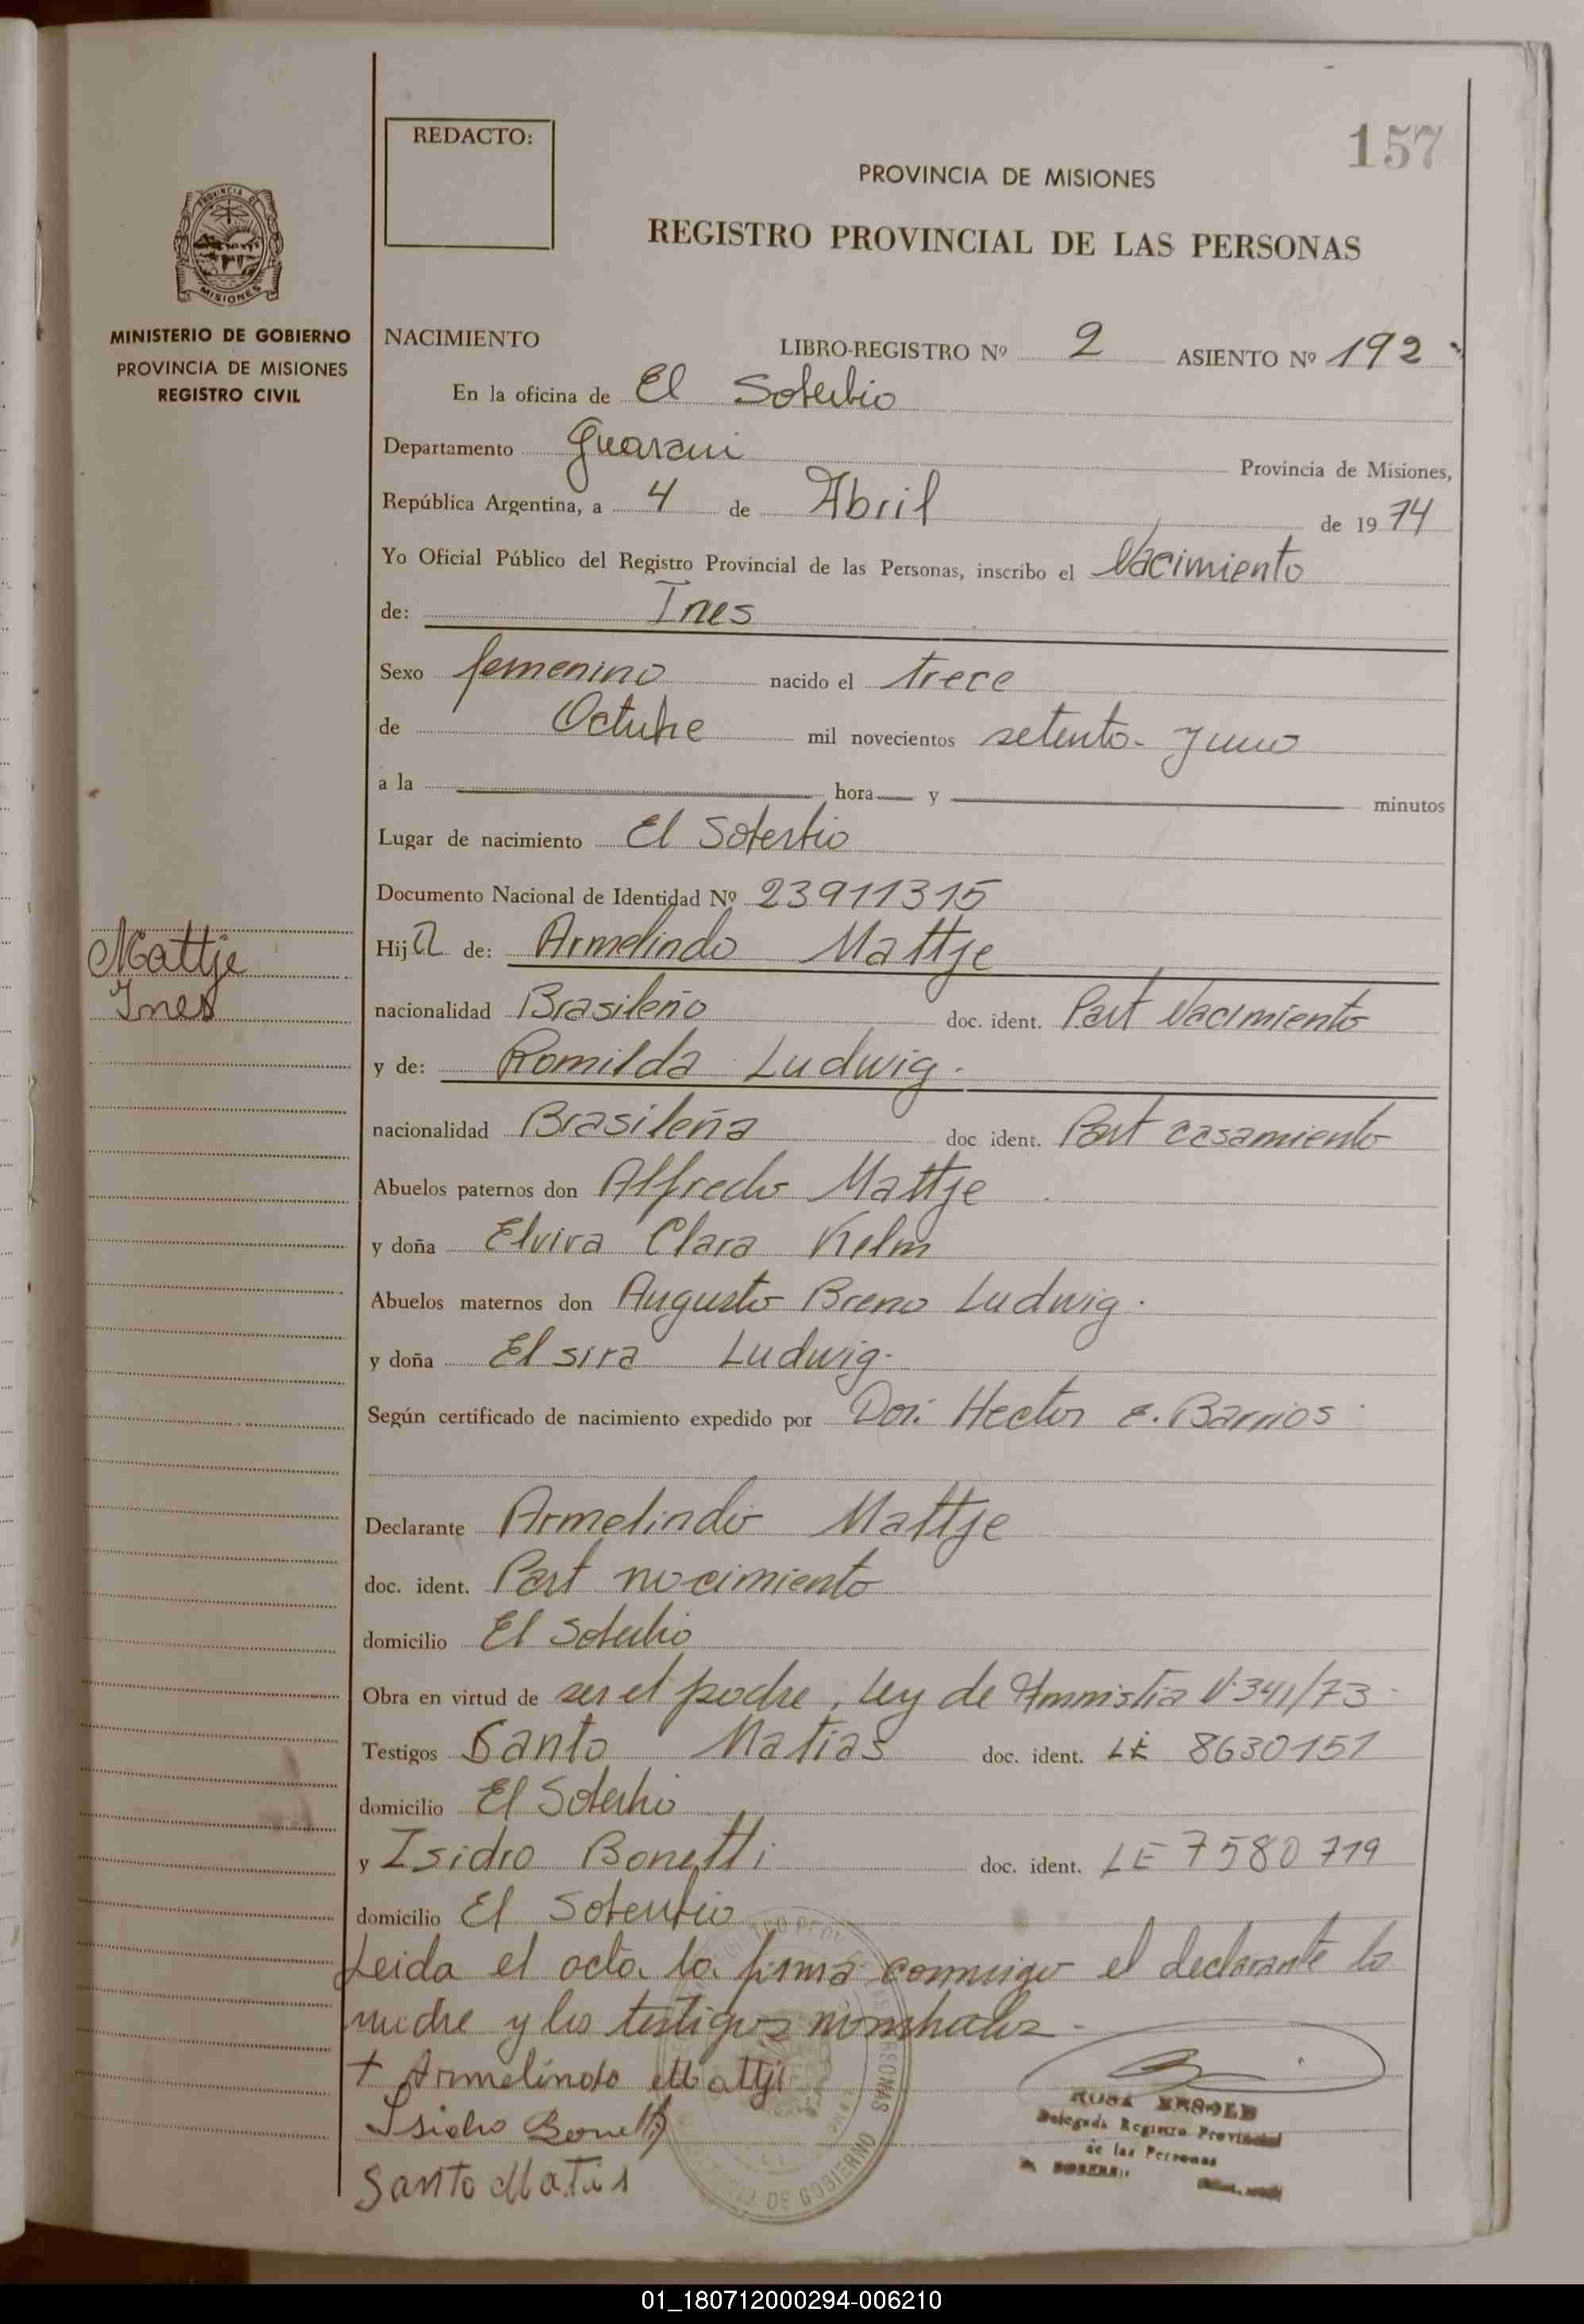 157
REDACTO:
PROVINCIA DE MISIONES
REGISTRO PROVINCIAL DE LAS PERSONAS
PROVINCIA DE MISIONES
MINISTERIO DE GOBIERNO
PROVINCIA DE MISIONES
REGISTRO CIVIL
NACIMIENTO LIBRO-REGISTRO Nº 2 ASIENTO Nº 192
En la oficina de El Soberbio
Departamento Guarani Provincia de Misiones,
República Argentina, a 4 de Abril de 1974
Yo Oficial Público del Registro Provincial de las Personas, inscribo el Nacimiento
de: Ines
Sexo femenino nacido el trece
de Octubre mil novecientos setenta y uno
a la hora y minutos
Lugar de nacimiento El Soberbio
Documento Nacional de Identidad Nº 23911315
Mattje
Ines
Hija de: Armelindo Mattje
nacionalidad Brasileño doc. ident. Part Nacimiento
y de: Romilda Ludwig.
nacionalidad Brasileña doc ident. Part casamiento
Abuelos paternos don Alfredo Mattje
y doña Elvira Clara Kelm
Abuelos maternos don Augusto Breno Ludwig.
y doña Elsira Ludwig.
Según certificado de nacimiento expedido por Hector E. Barrios
Declarante Armelindo Mattje
doc. ident. Part nacimiento
domicilio El Soberbio
Obra en virtud de ser el padre, Ley de Amnistia Nº 341/73
Testigos Santo Matias doc. ident. LE 8630151
domicilio El Soberbio
y Isidro Bonetti doc. ident. LE 7580719
domicilio El Soberbio
Leida el acta la firma conmigo el declarante la
madre y los testigos nombrados.
+ Armelindo Mattje
Isidro Bonetti
Santo Matis
ROSA
Delegada Registro Provincial
de las Personas
DE GOBIERNO
01_180712000294-006210